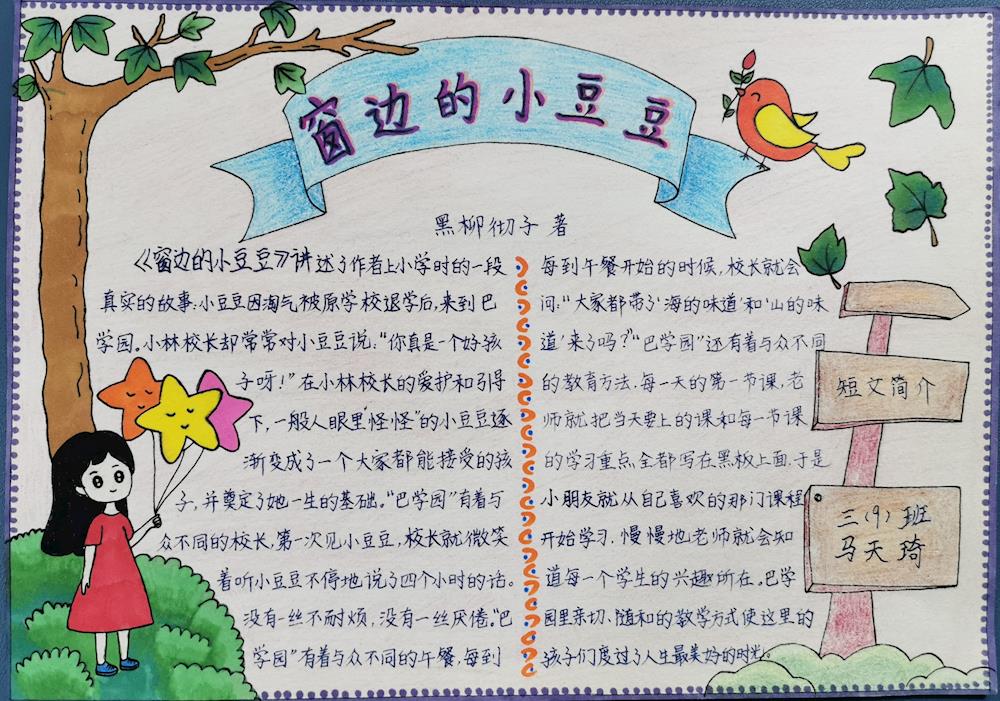 窗边的小豆豆
黑柳彻子 著
《窗边的小豆豆》讲述了作者上小学时的一段
真实的故事:小豆豆因淘气被原学校退学后,来到巴
学园。小林校长却常常对小豆豆说:“你真是一个好孩
子呀!”在小林校长的爱护和引导
下,一般人眼里“怪怪”的小豆豆逐
渐变成了一个大家都能接受的孩
子,并奠定了她一生的基础。“巴学园”有着与
众不同的校长,第一次见小豆豆,校长就微笑
着听小豆豆不停地说了四个小时的话。
没有一丝不耐烦,没有一丝厌倦。“巴
学园”有着与众不同的午餐,每到
每到午餐开始的时候,校长就会
问:“大家都带了‘海的味道’和‘山的味
道’来了吗?”“巴学园”还有着与众不同
的教育方法,每一天的第一节课,老
师就把当天要上的课和每一节课
的学习重点,全都写在黑板上面,于是
小朋友就从自己喜欢的那门课程
开始学习,慢慢地老师就会知
道每一个学生的兴趣所在。巴学
园里亲切、随和的教学方式使这里的
孩子们度过了人生最美好的时光。
短文简介
三(9)班
马天琦